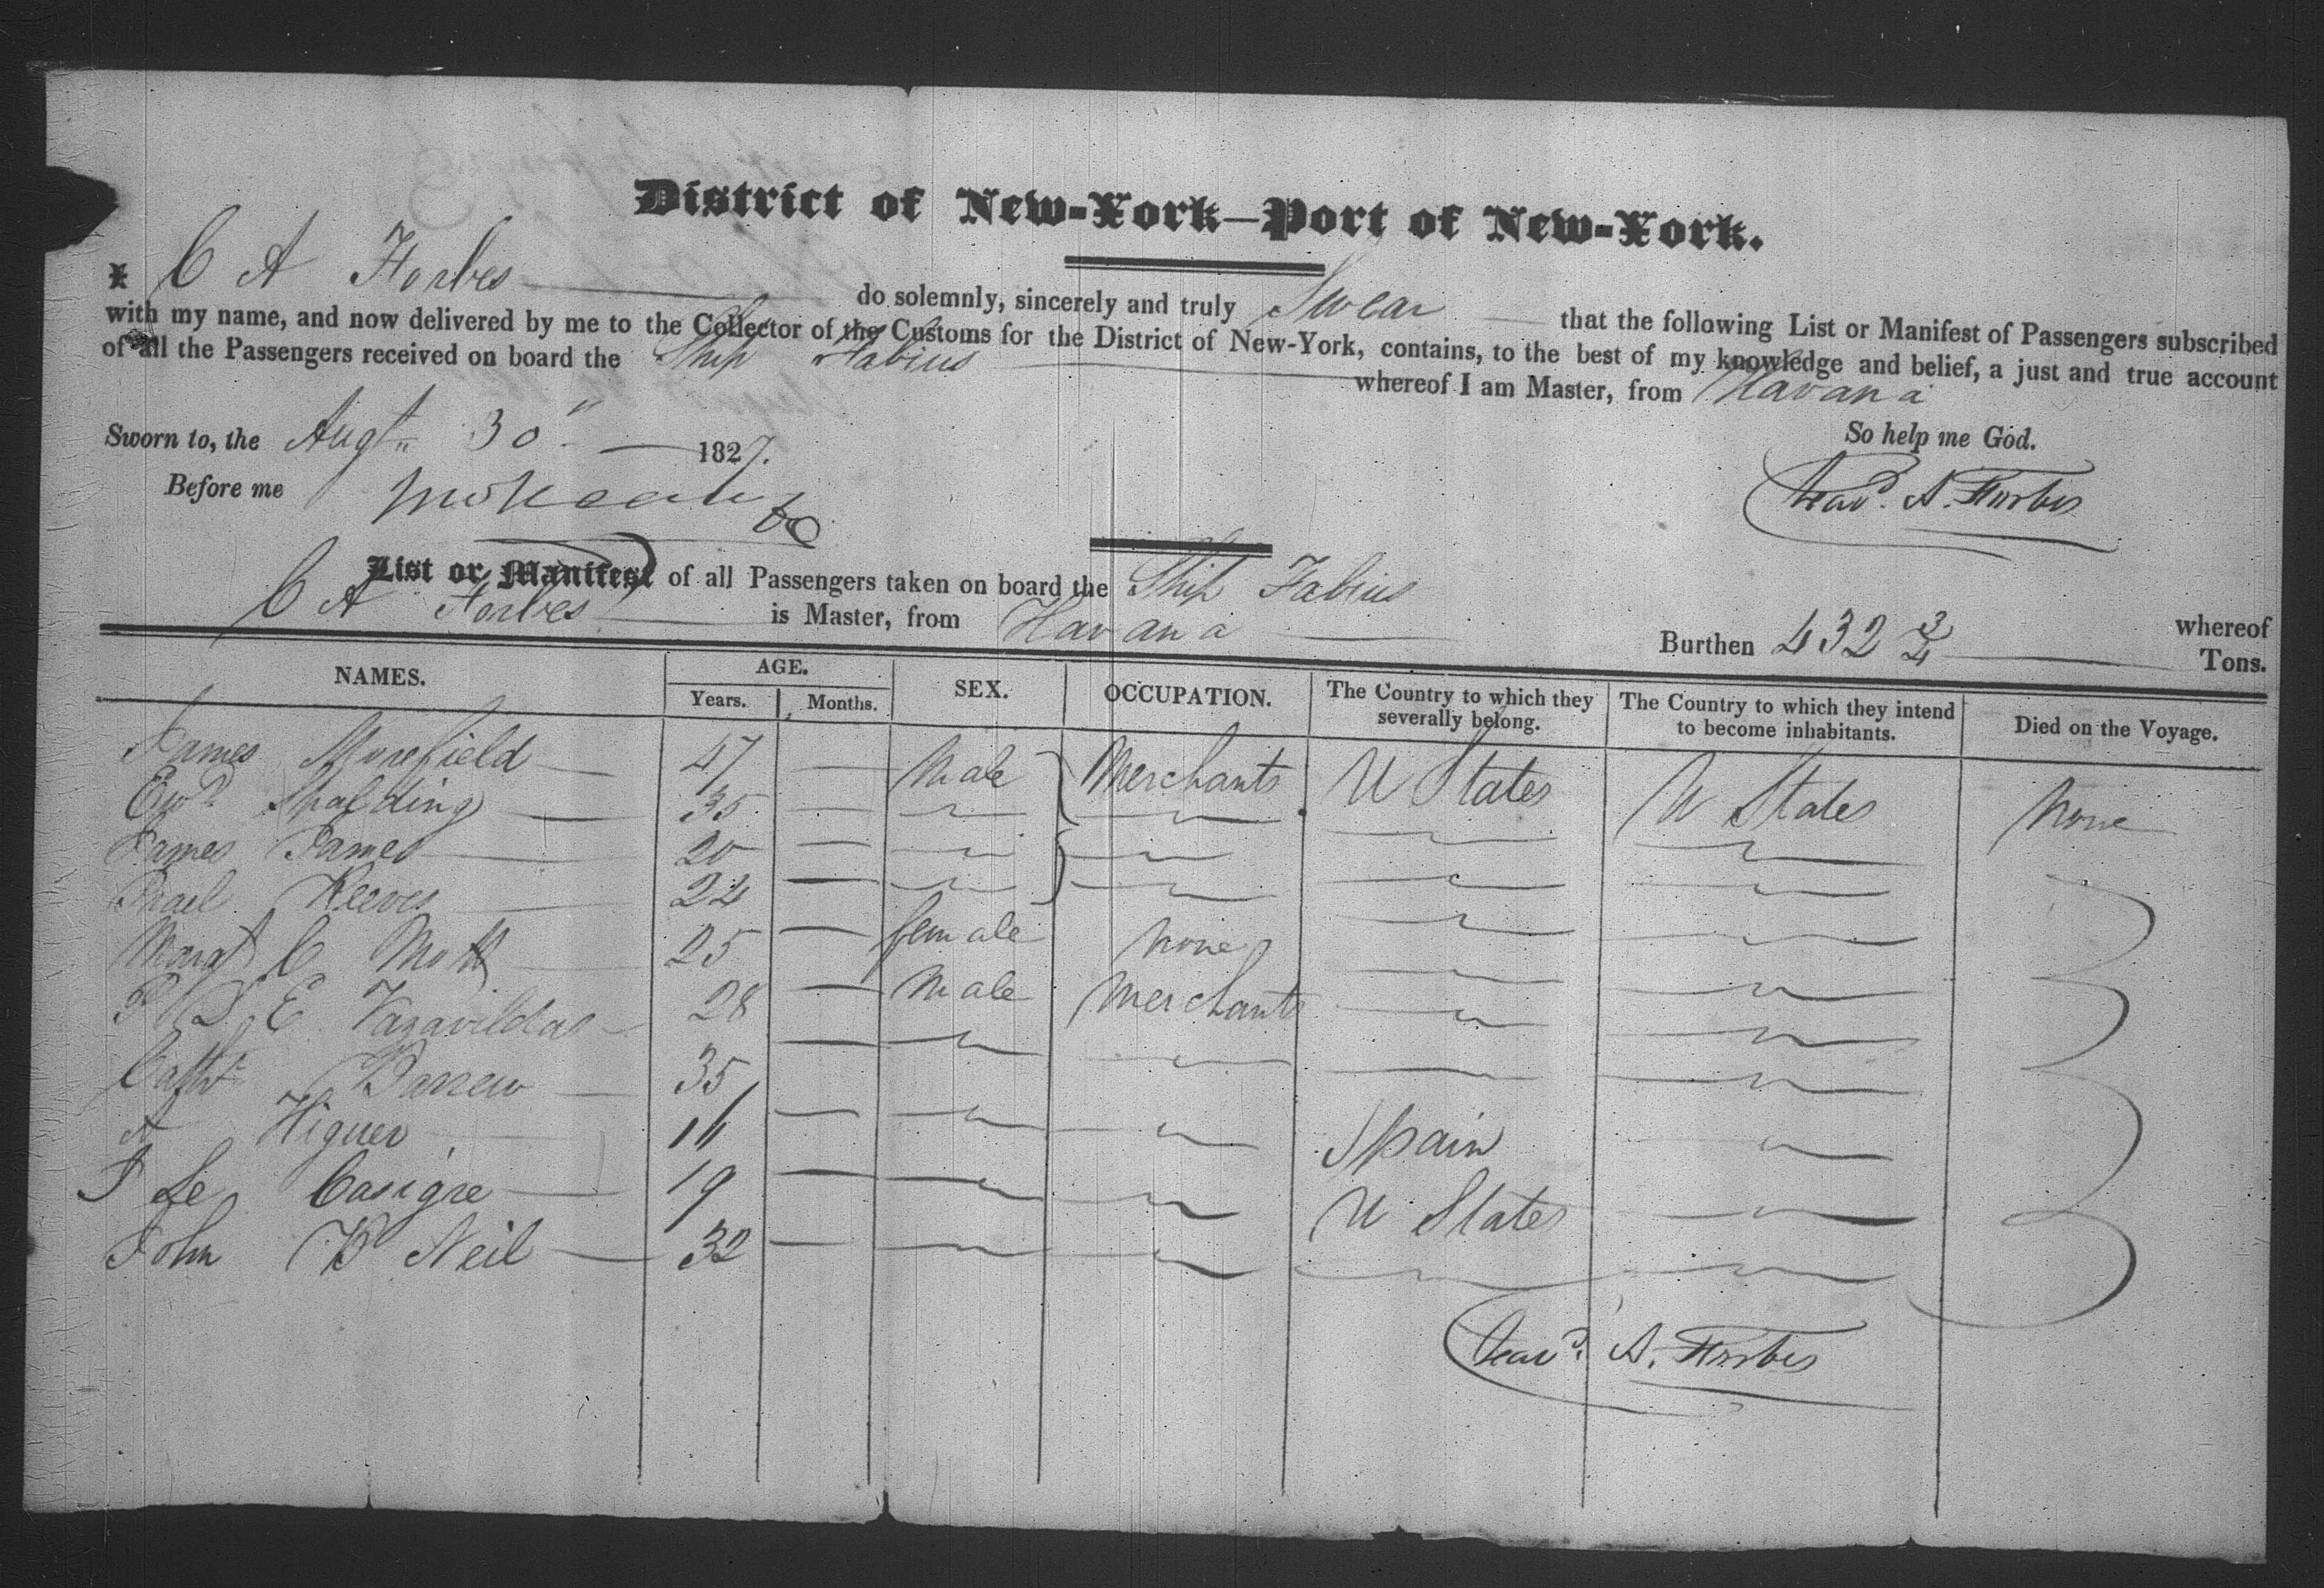 District of New-York—Port of New-York.
I C A Forbes do solemnly, sincerely and truly Swear that the following List or Manifest of Passengers subscribed
with my name, and now delivered by me to the Collector of the Customs for the District of New-York, contains, to the best of my knowledge and belief, a just and true account
of all the Passengers received on board the Ship Fabius whereof I am Master, from Havana
So help me God.
Sworn to, the Augt 30 1827.
Before me
A. Forbes
List or Manifest of all Passengers taken on board the Ship Fabius whereof
C A Forbes is Master, from Havana Burthen 432 3/4 Tons.
NAMES. AGE. Years. Months. SEX. OCCUPATION. The Country to which they severally belong. The Country to which they intend to become inhabitants. Died on the Voyage.
James Morefield 47 — Male Merchants U States U States None
Ewd Spalding 35 — " " " "
James James 20 — " " " "
Reeves 24 — " " " "
Margt C Mott 25 — female none " "
E 28 — Male Merchants " "
35 — " " " "
A Higuer 16 — " " Spain "
Le Casigre 19 — " " U States "
John B Neil 32 — " " " "
A. Forbes